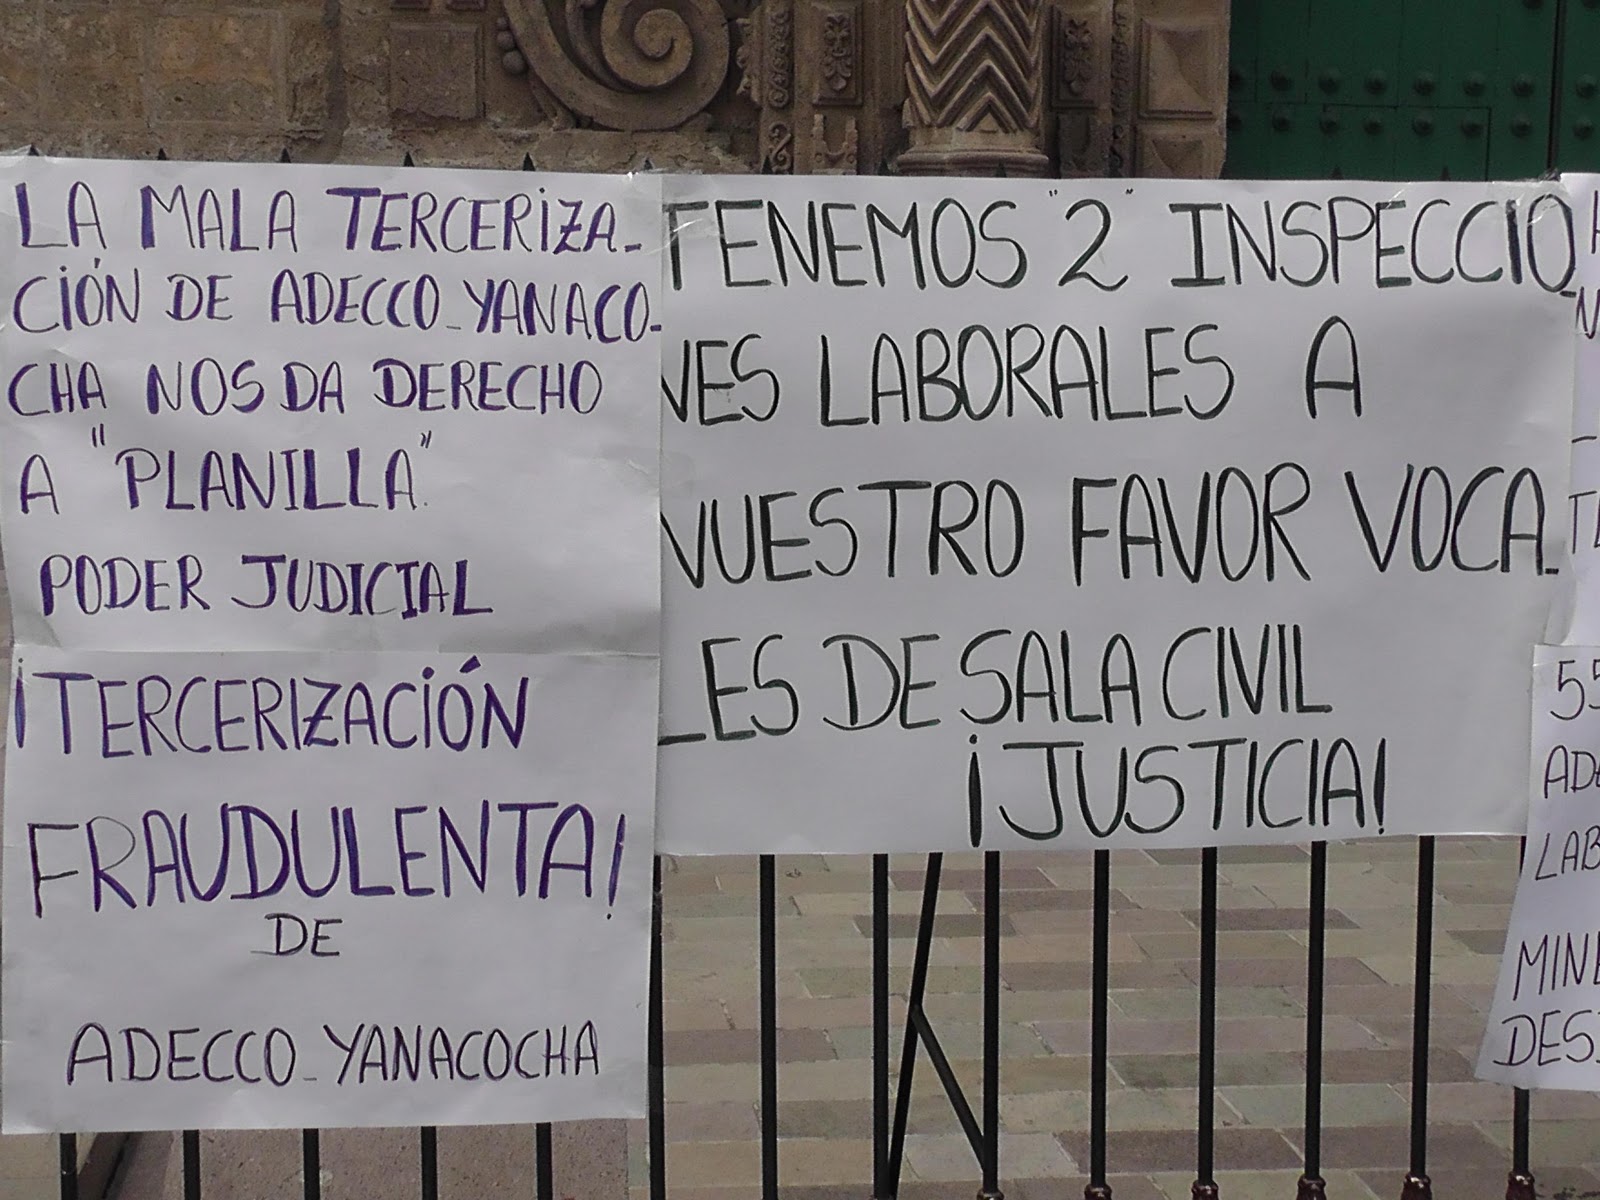 LA MALA TERCERIZA-
CIÓN DE ADECCO-YANACO-
CHA NOS DA DERECHO
A "PLANILLA".
PODER JUDICIAL
¡TERCERIZACIÓN
FRAUDULENTA!
DE
ADECCO-YANACOCHA
TENEMOS "2" INSPECCIO-
NES LABORALES A
NUESTRO FAVOR VOCA-
LES DE SALA CIVIL
¡JUSTICIA!